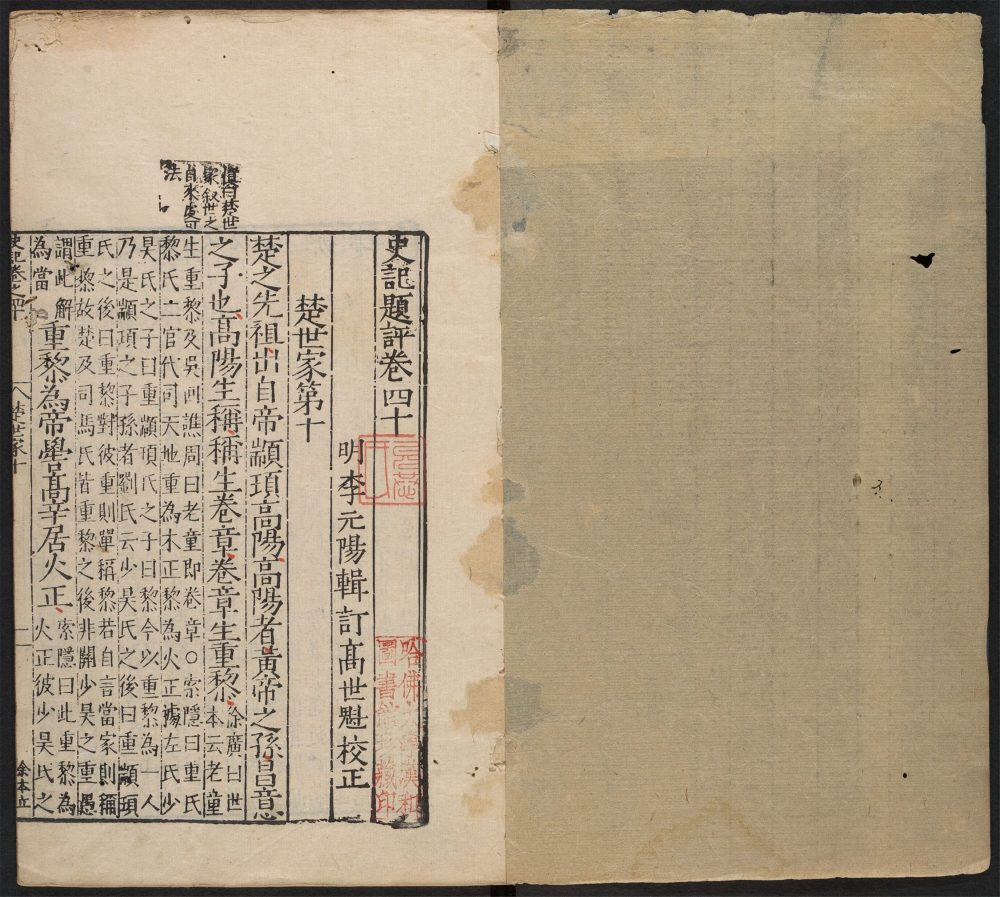 史記題評卷四十
明李元陽輯訂髙世魁校正
楚世家第十
楚之先祖出自帝顓頊高陽高陽者黃帝之孫昌意
之子也髙陽生稱稱生卷章卷章生重黎徐廣曰世本云老童
生重黎及吳回譙周曰老童即卷章○索隱曰重氏
黎氏二官代司天地重為木正黎為火正據左氏少
昊氏之子曰重顓頊氏之子曰黎今以重黎為一人
乃是顓頊之子孫者劉氏云少昊氏之後曰重顓頊
氏之後曰重黎對彼重則單稱黎若自言當家則稱
重黎故楚及司馬氏皆重黎之後非關少昊之重愚
謂此解為當重黎為帝嚳高辛居火正索隱曰此重黎為火正彼少昊氏之
史記卷之四十
楚世家十
一
余本立
世
家叙世之
自來處可
法
哈佛大學漢和
圖書館珍藏印